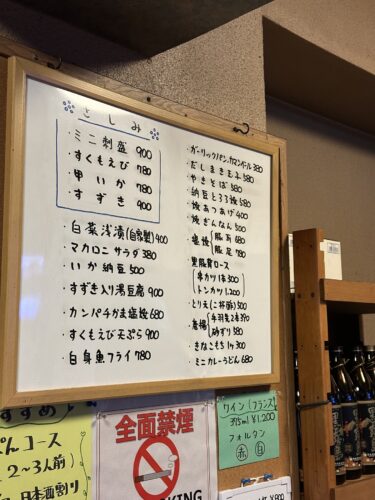 さしみ
・ミニ刺盛 900
・すくもえび 780
・甲いか 780
・すずき 900
・白菜浅漬(自家製)400
・マカロニサラダ 380
・いか納豆 500
・すずき入り湯豆腐 900
・カンパチかま塩焼 680
・すくもえび天ぷら 900
・白身魚フライ 780
・ガーリックパン、カマンベール 380
・だしまき玉子 580
・やきそば 580
・納豆とろろ焼 580
・焼あつあげ 400
・焼ぎんなん 500
・塩焼 豚耳 680
豚足 780
・黒豚肩ロース
串カツ1本 300
トンカツ 1,200
・とりえ(こ杯酢) 500
・唐揚 手羽先2本 390
砂ずり 580
・きなこもち 1ヶ 300
・ミニカレーうどん 680
すすめ
コース
2〜3人前)
日本酒割り
全面禁煙
ワイン(フランス)
375ml ¥1,200
フォルタン
赤 白